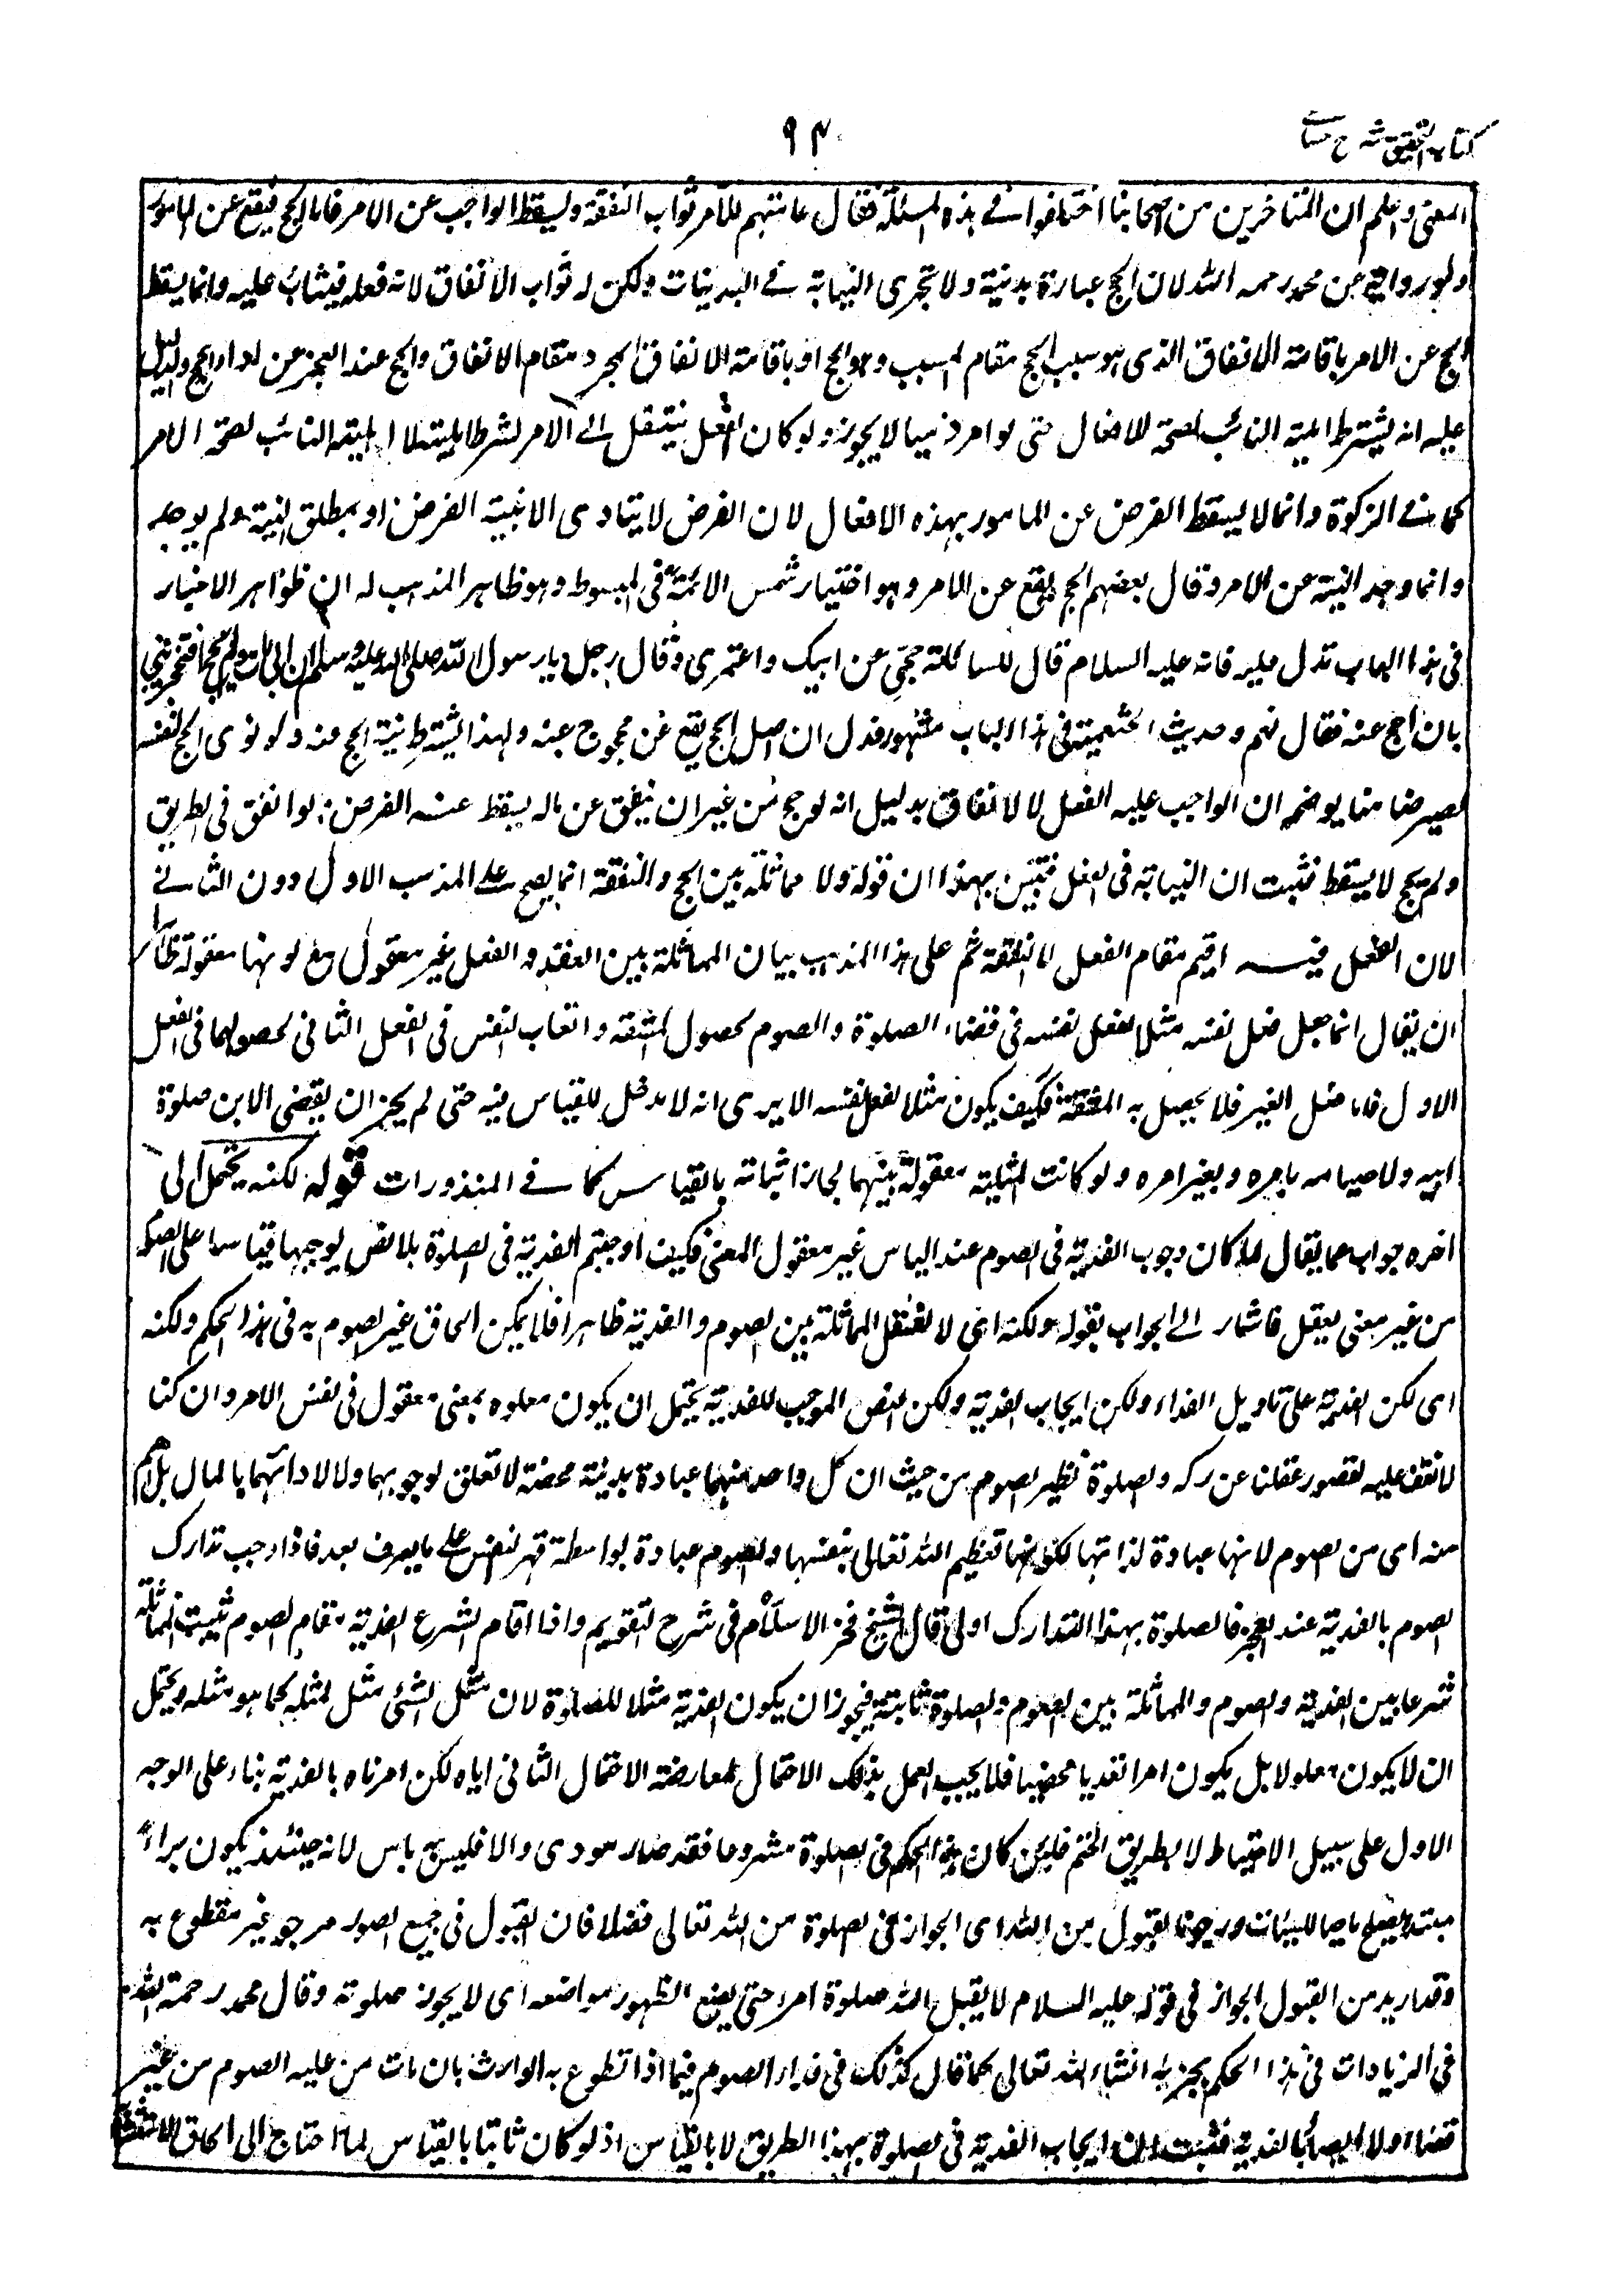 كتاب التحقيق شرح حسامي
٩٣
المعنى واعلم ان المتاخرين من اصحابنا اختلفوا في هذه المسئلة فقال عامتهم للآمر ثواب النفقة ويسقط الواجب عن الامر فاما الحج فيقع عن المامور
وهو رواية عن محمد رحمه الله لان الحج عبادة بدنية ولا تجرى النيابة في البدنيات ولكن له ثواب الانفاق لانه فعله فيثاب عليه وانما يسقط
الحج عن الامر باقامة الانفاق الذى هو سبب الحج مقام المسبب وهو الحج او باقامة الانفاق المجرد مقام الانفاق والحج عند العجز عن اداء الحج والدليل
عليه انه يشترط اهلية النائب لصحة الافعال حتى لو امر ذميا لا يجوز ولو كان الفعل ينتقل الى الآمر لشرط اهليته لا اهلية النائب لصحة الامر
كما في الزكوة وانما لا يسقط الفرض عن المامور بهذه الافعال لان الفرض لا يتادى الا بنية الفرض او بمطلق النية ولم يوجد
وانما وجد النية عن الامر وقال بعضهم الحج يقع عن الامر وهو اختيار شمس الائمة في المبسوط وهو ظاهر المذهب له ان ظواهر الاخبار
في هذا الباب تدل عليه فانه عليه السلام قال للسائلة حجى عن ابيك واعتمرى وقال رجل يا رسول الله صلى الله عليه وسلم ان ابى مات ولم يحج افتجزيني
بان احج عنه فقال نعم وحديث الخثعمية في هذا الباب مشهور فدل ان اصل الحج يقع عن محجوج عنه ولهذا يشترط نية الحج عنه ولو نوى الحج لنفسه
يصير ضامنا يوضحه ان الواجب عليه الفعل لا الانفاق بدليل انه لو حج من غير ان ينفق عن ماله يسقط عنه الفرض ولو انفق في الطريق
ولم يحج لا يسقط فثبت ان النيابة في الفعل فتبين بهذا ان قوله ولا مماثلة بين الحج والنفقة انما يصح على المذهب الاول دون الثاني
لان الفعل فيه اقيم مقام الفعل لا النفقة ثم على هذا المذهب بيان المماثلة بين الفعل والفعل غير معقول مع كونها معقولة ظاهرا
ان يقال انما جعل فعل نفسه مثلا لفعل نفسه في قضاء الصلوة والصوم لحصول المشقة واتعاب النفس في الفعل الثاني لحصولهما في الفعل
الاول فاما فعل الغير فلا يحصل به المشقة فكيف يكون مثلا لفعل نفسه الا يرى انه لا مدخل للقياس فيه حتى لم يجز ان يقضى الابن صلوة
ابيه ولا صيامه بامره وبغير امره ولو كانت المثلية معقولة بينهما لجاز اثباته بالقياس كما في المنذورات قوله لكنه يحتمل الى
اخره جواب عما يقال لما كان وجوب الفدية في الصوم عند الياس غير معقول المعنى فكيف اوجبتم الفدية في الصلوة بلا نص يوجبها قياسا على الصوم
من غير معنى يعقل فاشار الى الجواب بقوله ولكنه اى لا نعقل المماثلة بين الصوم والفدية ظاهرا فلا يمكن الحاق غير الصوم به في هذا الحكم ولكنه
اى لكن الفدية على تاويل الفداء ولكن ايجاب الفدية ولكن النص الموجب للفدية يحتمل ان يكون معلولا بمعنى معقول في نفس الامر وان كنا
لا نقف عليه لقصور عقلنا عن دركه والصلوة نظير الصوم من حيث ان كل واحد منهما عبادة بدنية محضة لا تعلق لوجوبهما ولا لادائهما بالمال بل اهم
منه اى من الصوم لانها عبادة لذاتها لكونها تعظيم الله تعالى بنفسها والصوم عبادة بواسطة قهر النفس على ما يعرف بعد فاذا وجب تدارك
الصوم بالفدية عند العجز فالصلوة بهذا التدارك اولى قال الشيخ فخر الاسلام في شرح التقويم واذا اقام الشرع الفدية مقام الصوم ثبتت المماثلة
شرعا بين الفدية والصوم والمماثلة بين الصوم والصلوة ثابتة فيجوز ان يكون الفدية مثلا للصلوة لان مثل الشئى مثل لمثله كما هو مثله ويحتمل
ان لا يكون معلولا بل يكون امرا تعبديا محضا فلا يجب العمل بذلك الاحتمال لمعارضة الاحتمال الثاني اياه لكن امرناه بالفدية بناء على الوجه
الاول على سبيل الاحتياط لا بطريق الحتم فلئن كان هذا الحكم في الصلوة مشروعا فقد صار مودى والا فليس به باس لانه حينئذ يكون براء
مبتدا يصلح ماحيا للسيئات ورجونا القبول من الله اى الجواز في الصلوة من الله تعالى فضلا فان القبول في جميع الصور مرجو غير مقطوع به
وقد اريد من القبول الجواز في قوله عليه السلام لا يقبل الله صلوة امرء حتى يضع الطهور مواضعه اى لا يجوز صلوته وقال محمد رحمة الله
في الزيادات في هذا الحكم يجزيه انشاء الله تعالى كما قال كذلك في فداء الصوم فيما اذا تطوع به الوارث بان مات من عليه الصوم من غير
قضاء ولا ايصاء بالفدية فثبت ان ايجاب الفدية في الصلوة بهذا الطريق لا بالقياس اذ لو كان ثابتا بالقياس لما احتاج الى الحاق الاستثناء